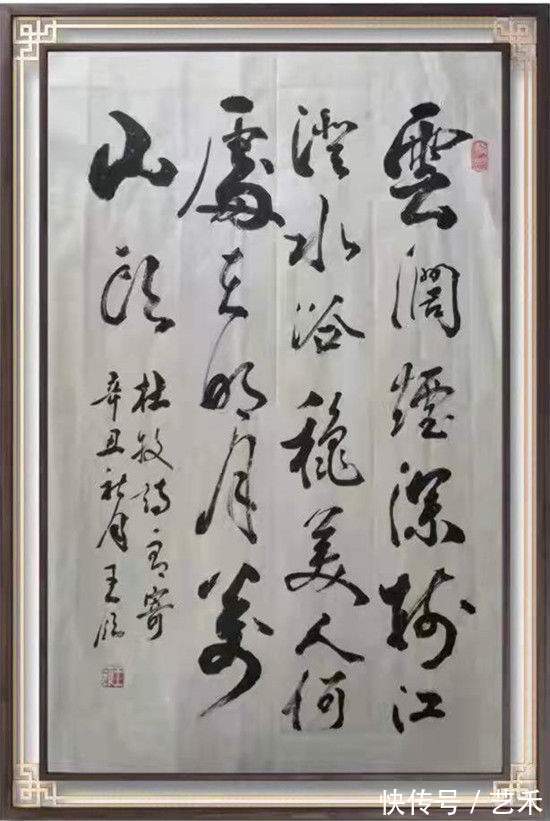 雲濶煙深樹江
澄水浴穐美人何
處在明月萬
山頭
杜牧詩有寄
辛丑秋月王
快传号 / 艺禾